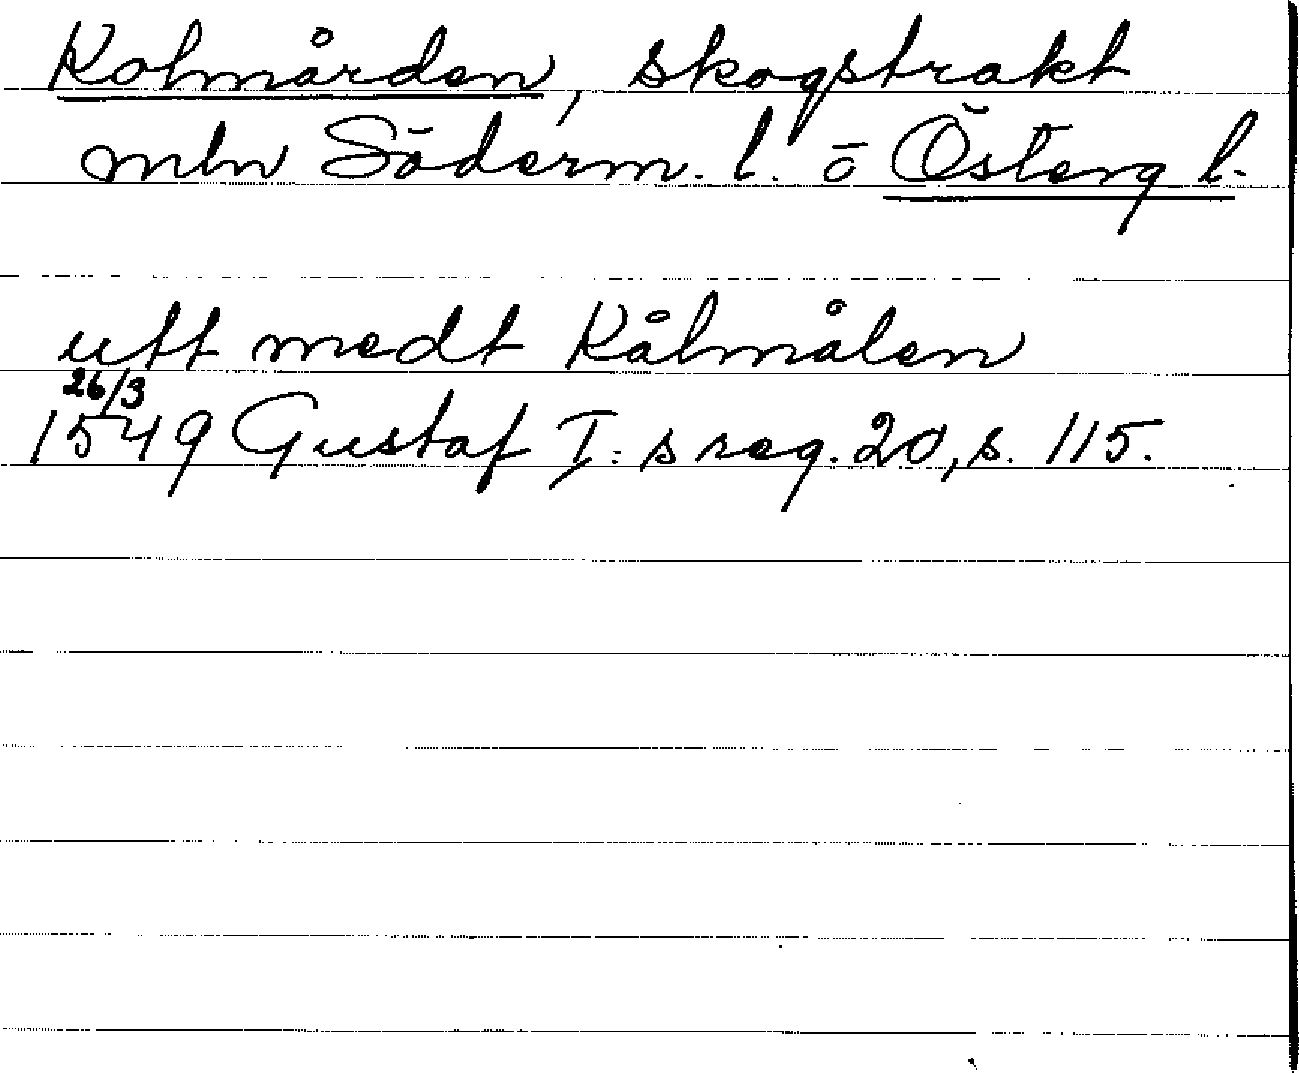 Kolmården, skogstrakt
mln Söderm. l. o Österg l.
utt medt Kålmålen
26/3
1549 Gustaf I:s reg. 20, s. 115.